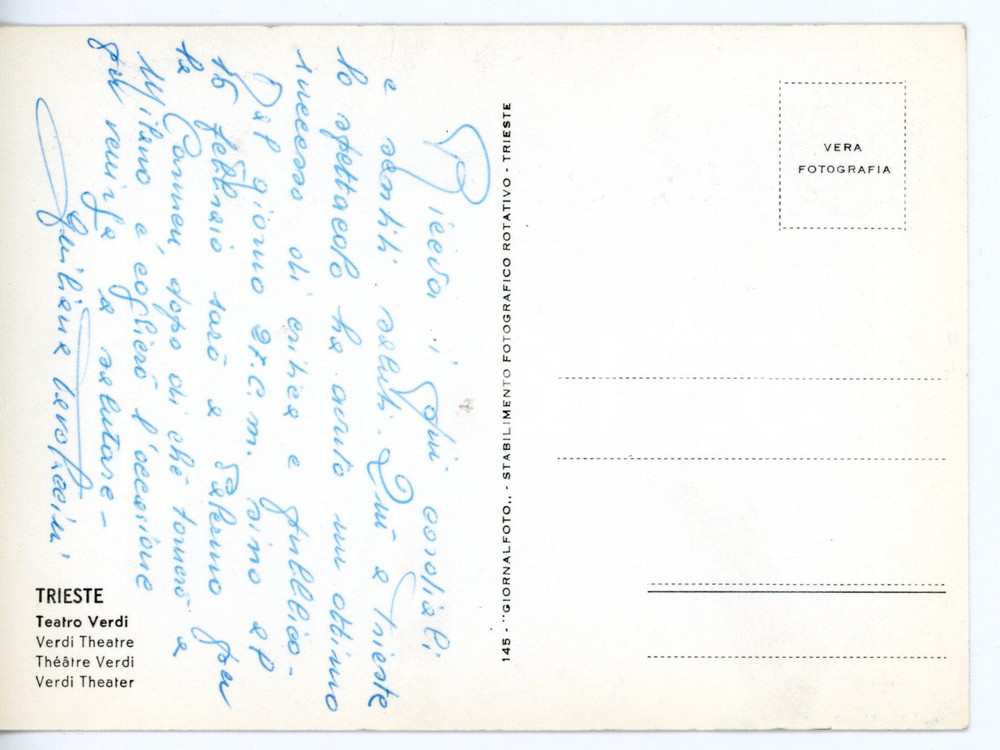 Riceva i più cordiali
e sentiti saluti. Quì a Trieste
lo spettacolo ha avuto un ottimo
successo di critica e pubblico-
Dal giorno 27.c.m. sino al
15 febbraio sarò a Palermo per
la Carmen, dopo di chè tornerò a
Milano e coglierò l'occasione
per venirla a salutare-
Giuliana
TRIESTE
Teatro Verdi
Verdi Theatre
Théâtre Verdi
Verdi Theater
145 - "GIORNALFOTO,, - STABILIMENTO FOTOGRAFICO ROTATIVO - TRIESTE
VERA
FOTOGRAFIA